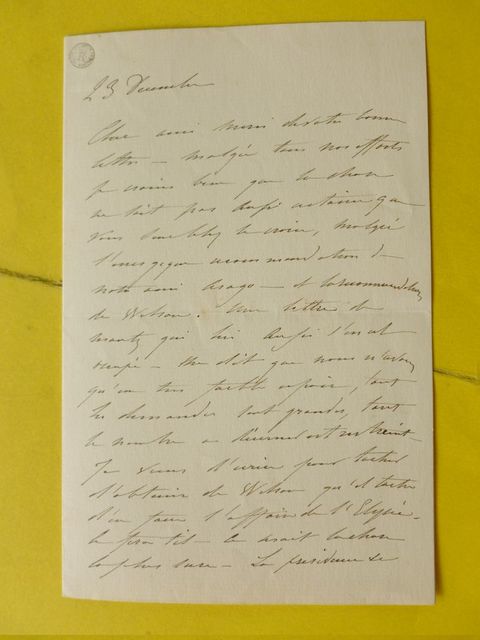 23 Décembre
Cher ami merci de votre bonne
lettre – malgré tous nos efforts
je crains bien que la chose
ne soit pas aussi certaine que
vous semblez le croire, malgré
l'énergique recommandation de
notre ami – et la recommandation
de Wilson. Une lettre de
qui lui aussi s'en est
occupé – me dit que nous n'avons
qu'un très faible espoir, tant
les demandes sont grandes, tant
le nombre à décerner est restreint –
Je viens d'écrire pour tacher
d'obtenir de Wilson qu'il tache
d'en faire l'affaire de l'Elysée –
le fera-t-il – ce serait la chose
la plus sure – La présidence se